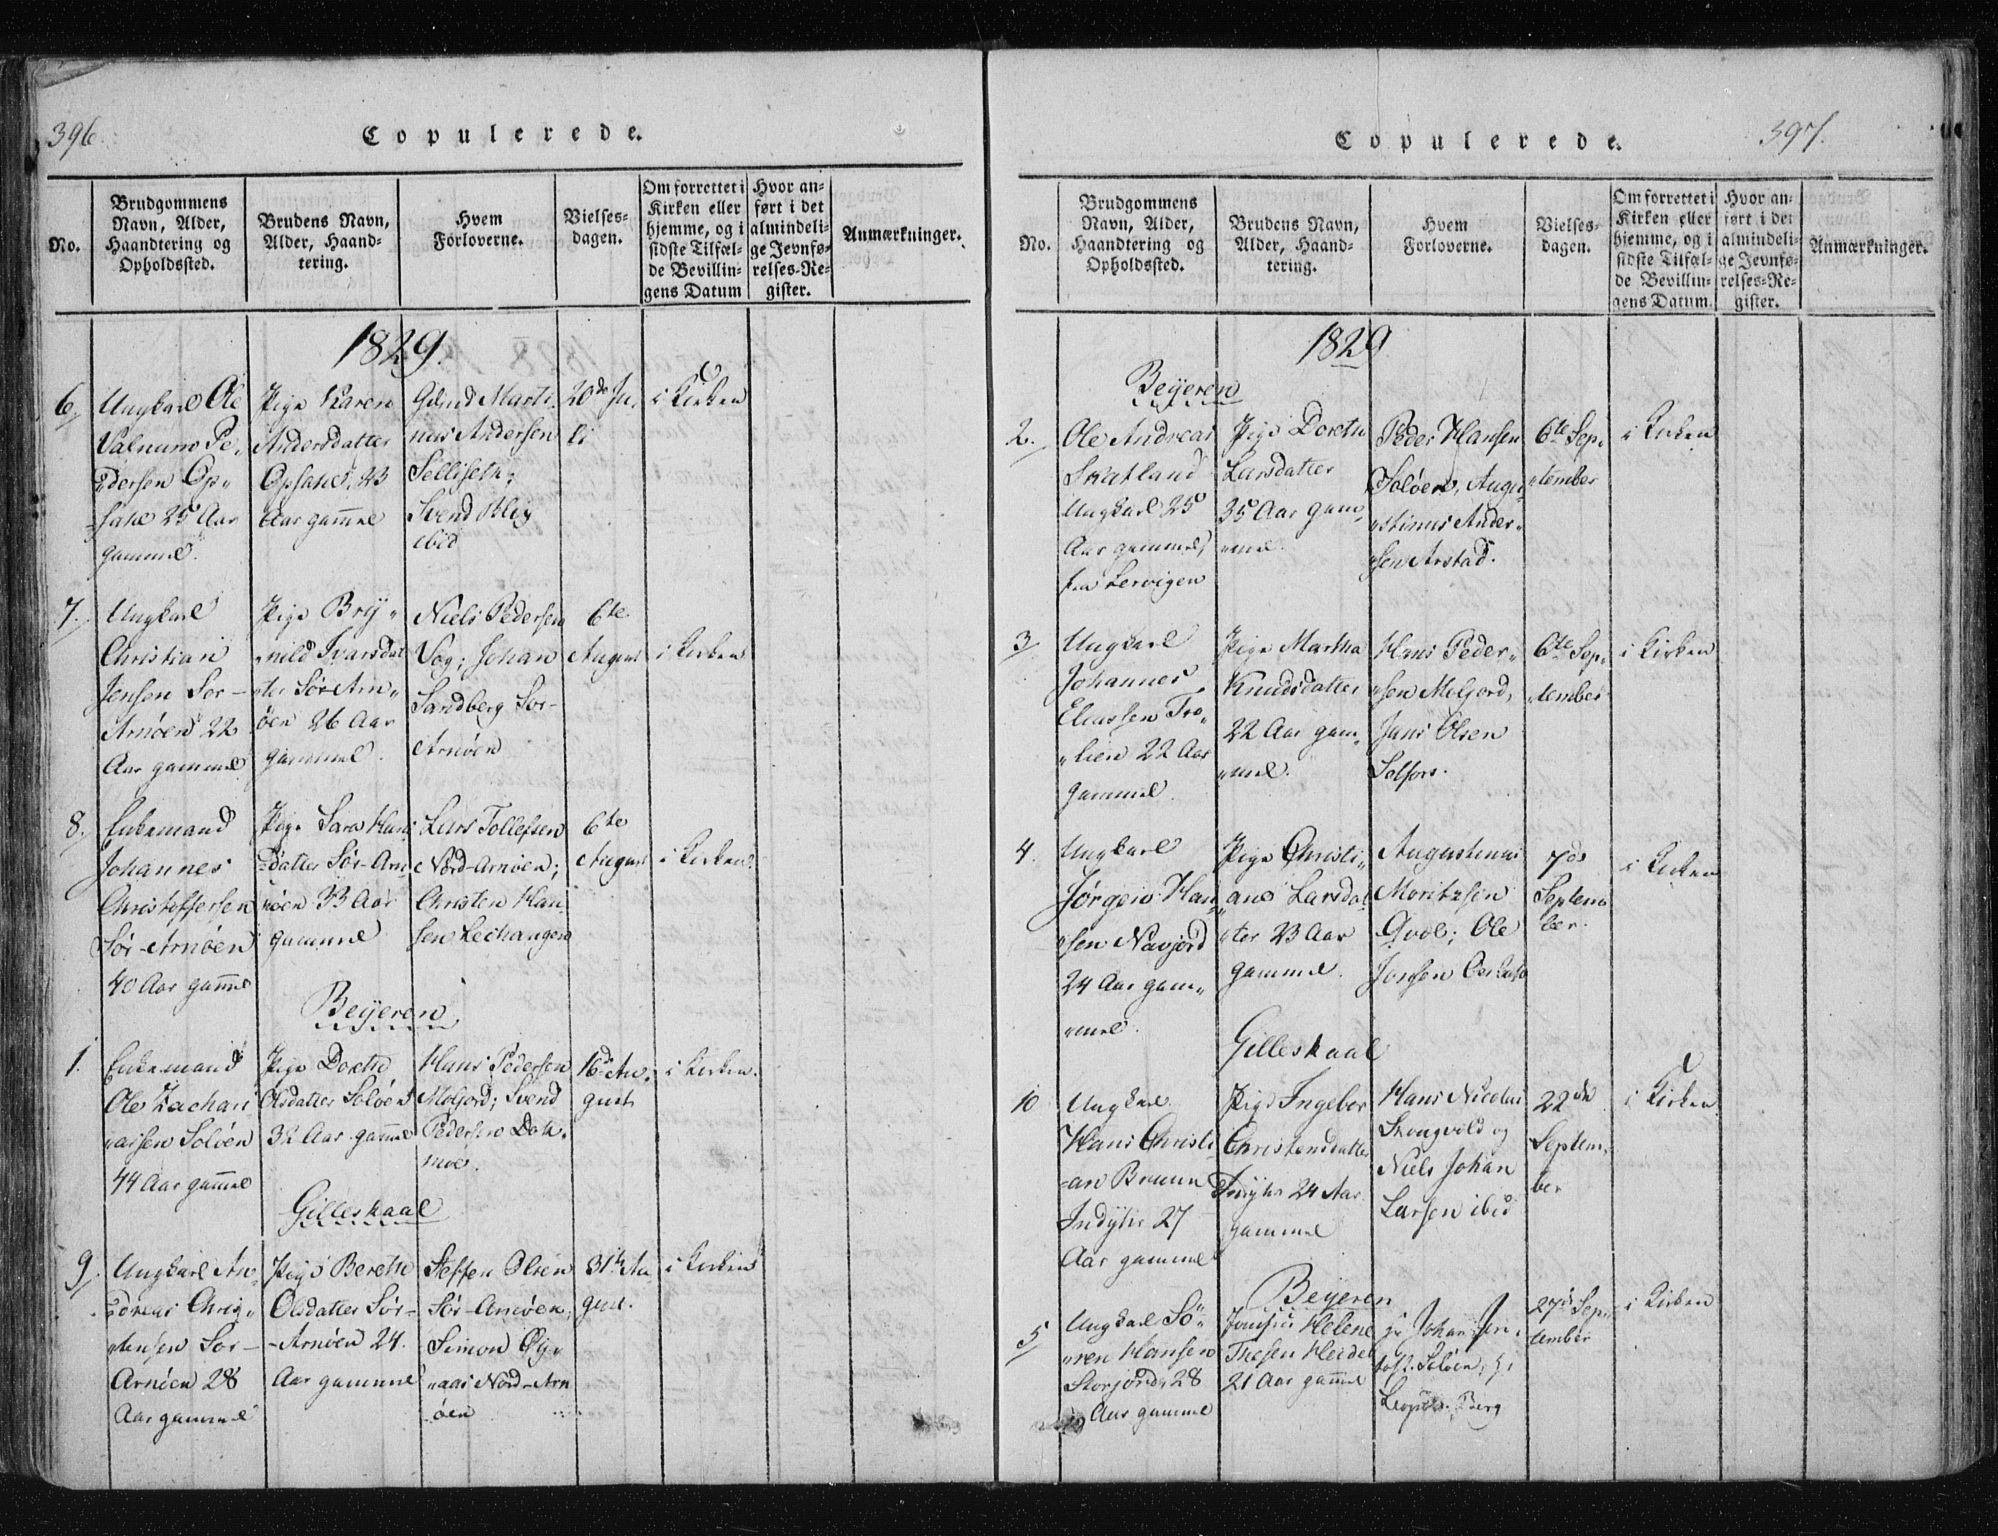 396.
Copulerede.
No.
Brudgommens
Navn, Alder,
Haandtering og
Opholdssted.
Brudens Navn,
Alder, Haand-
tering.
Hvem
Forloverne.
Vielses-
dagen.
Om forrettet i
Kirken eller
hjemme, og i
sidste Tilfæl-
de Bevillin-
gens Datum
Hvor an-
ført i det
almindeli-
ge Jevnfø-
relses-Re-
gister.
Anmærkninger.
1829.
6.
Ungkarl Ole
Pe-
dersen Op-
sahl 25 Aar
gammel.
Pige Karen
Andersdatter
Opsahl, 23
Aar gammel
Marti-
nus Andersen
Selliseth;
Svend
ibid
20de Ju-
li
i Kirken
7.
Ungkarl
Christian
Jensen Sør-
Arnøen 22
Aar gammel
Pige Bry-
nild Ivarsdat-
ter Sør Arn-
øen 26 Aar
gammel.
Niels Pedersen
Vog; Johan
Sandberg Sør-
Arnøen
6te
August
i Kirken
8.
Enkemand
Johannes
Christoffersen
Sør-Arnøen
40 Aar gammel
Pige Sara Hans
datter Sør-Arn-
øen 33 Aar
gammel
Lars Tollefsen
Nord-Arnøen;
Christen Han-
sen Lechangen
6te
August
i Kirken
Beyeren.
1.
Enkemand
Ole Zachari
asen Soløen
44 Aar gammel
Pige Dorthe
Olsdatter Soløen
32 Aar gammel
Hans Pedersen
Moljord; Svend
Pedersen Dok-
moe.
16de Au-
gust
i Kirken.
Gilleskaal
9.
Ungkarl An-
dreas Chris-
tensen Sør-
Arnøen 28
Aar gammel
Pige Berethe
Olsdatter Sør-
-Arnøen 24
Aar gammel
Steffen Olsen
Sør-Arnøen,
Simon
Nord-Arn
øen
31te Au
gust.
i Kirken
397.
Copulerede.
No.
Brudgommens
Navn, Alder,
Haandtering og
Opholdssted.
Brudens Navn,
Alder, Haand-
tering.
Hvem
Forloverne.
Vielses-
dagen.
Om forrettet i
Kirken eller
hjemme, og i
sidste Tilfæl-
de Bevillin-
gens Datum.
Hvor an-
ført i det
almindeli-
ge Jevnfø-
relses-Re-
gister.
Anmærkninger.
1829
Beyeren
2.
Ole Andreas
Skatland
Ungkarl 25
Aar gammel,
fra Lervigen
Pige Dorethe
Larsdatter
35 Aar gam-
mel.
Peder Hansen
Soløen, Augu-
stinus Ander-
sen Arstad.
6te Sep-
tember
i Kirken
3.
Ungkarl
Johannes
Eliassen Tro-
lien 22 Aar
gammel
Pige Martha
Knudsdatter
22 Aar gam-
mel.
Hans Peder-
sen Moljord,
Jens Olsen
Solfors.
6te Sep-
tember
i Kirken
4.
Ungkarl
Jørgen Han-
sen Navjord
24 Aar gam-
mel.
Pige Christi-
ane Larsdat-
ter 23 Aar
gammel.
Augustinus
Moritzsen
Qvæl; Ole
Jonsen
7de
Septem
ber.
i Kirken
Gilleskaal
10
Ungkarl
Hans Christi
-an Bruun
Indyhr 27
Aar gammel
Pige Ingebor
Christensdatter
Indyhr 24 Aar
gammel
Hans Nicolai
Skougvold og
Niels Johan
Larsen ibid
22de
Septem-
ber
i Kirken
Beyeren
5.
Ungkarl Sö-
ren Hansen
Storjord, 28
Aar gammel
Jomfru Helene
Thesen Heidel
21 Aar gammel
Johan
Soløen,
Berg
27de Sep-
tember
i Kirken